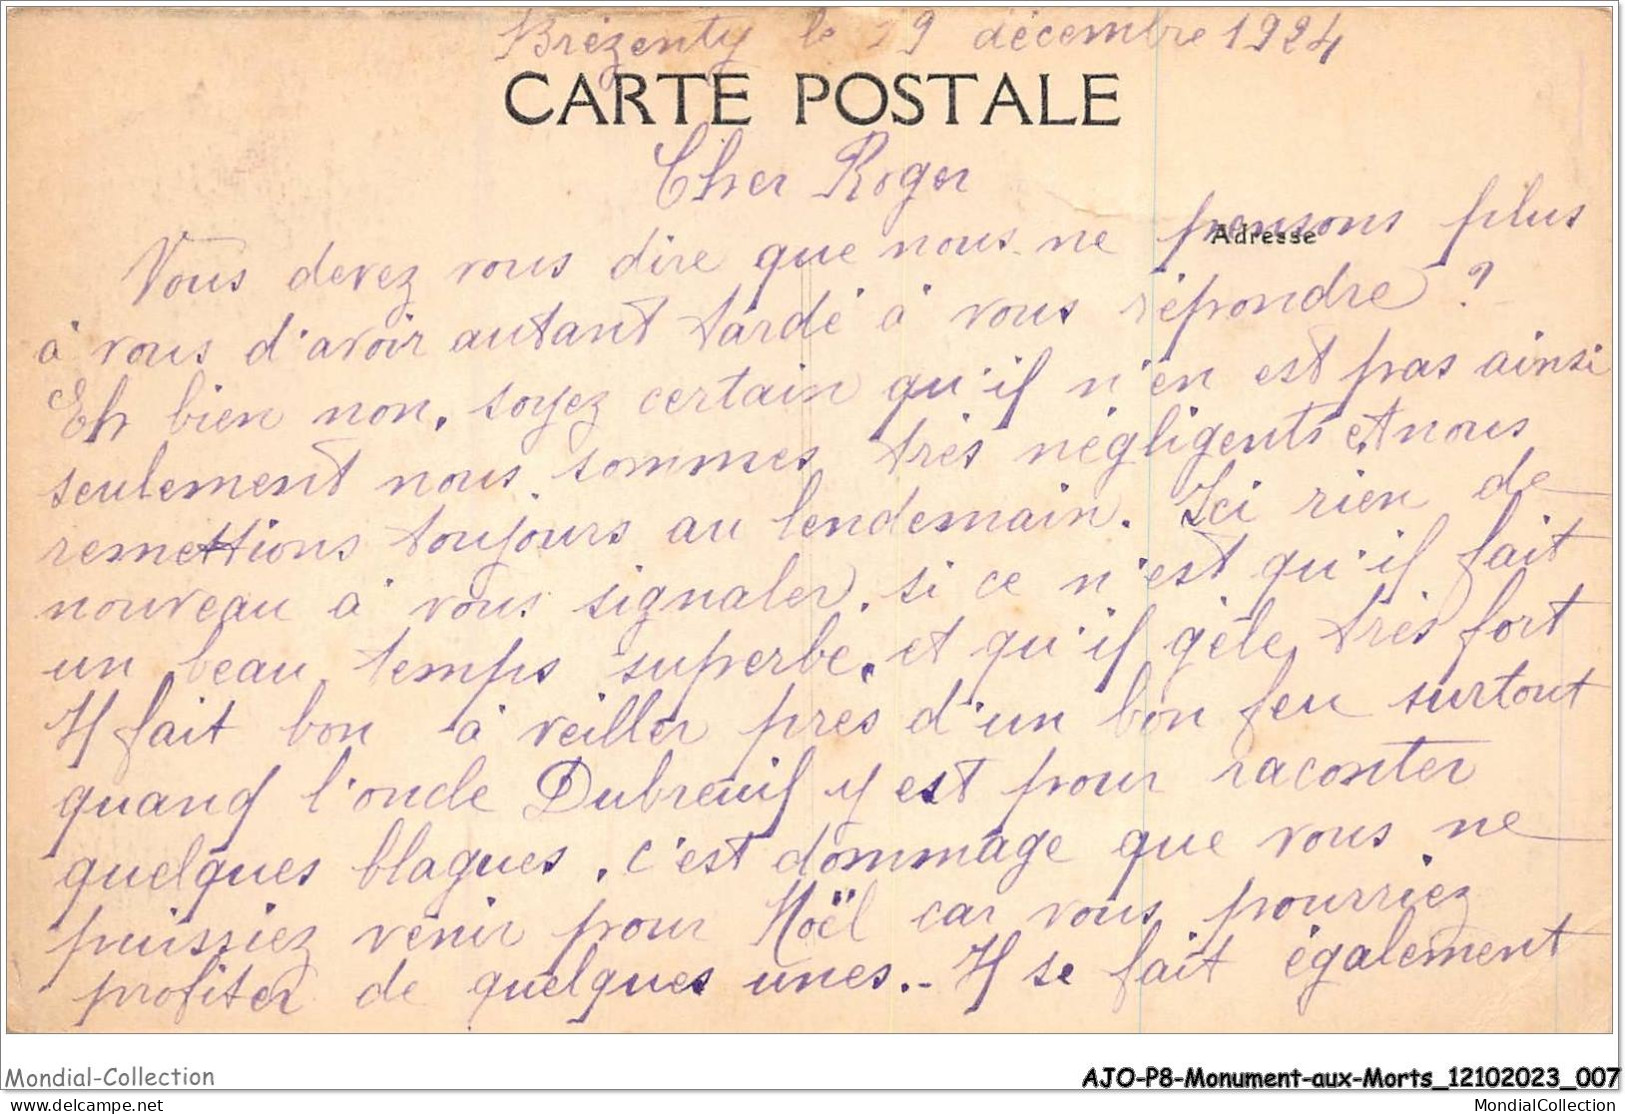 Brézenty le 29 décembre 1924
CARTE POSTALE
Cher Roger
Adresse
Vous devez vous dire que nous ne pensons plus
à vous d'avoir autant tardé à vous répondre ?
Eh bien non, soyez certain qu'il n'en est pas ainsi
seulement nous sommes très négligents et nous
remettions toujours au lendemain. Ici rien de
nouveau à vous signaler, si ce n'est qu'il fait
un beau temps superbe, et qu'il gèle très fort
Il fait bon à veiller près d'un bon feu surtout
quand l'oncle Dubreuil y est pour raconter
quelques blagues, c'est dommage que vous ne
puissiez venir pour Noël car vous pourriez
profiter de quelques unes.. Il se fait également
Mondial-Collection
AJO-P8-Monument-aux-Morts_12102023_007
delcampe.net
MondialCollection